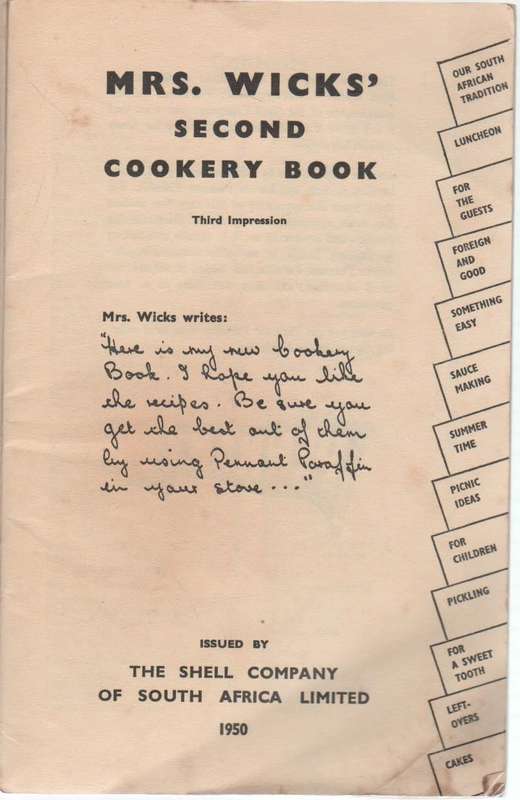 MRS. WICKS'
SECOND
COOKERY BOOK
Third Impression
Mrs. Wicks writes:
"Here is my new Cookery
Book. I hope you like
the recipes. Be sure you
get the best out of them
by using Pennant Paraffin
in your stove ..."
ISSUED BY
THE SHELL COMPANY
OF SOUTH AFRICA LIMITED
1950
OUR SOUTH
AFRICAN
TRADITION
LUNCHEON
FOR
THE
GUESTS
FOREIGN
AND
GOOD
SOMETHING
EASY
SAUCE
MAKING
SUMMER
TIME
PICNIC
IDEAS
FOR
CHILDREN
PICKLING
FOR
A SWEET
TOOTH
LEFT-
OVERS
CAKES